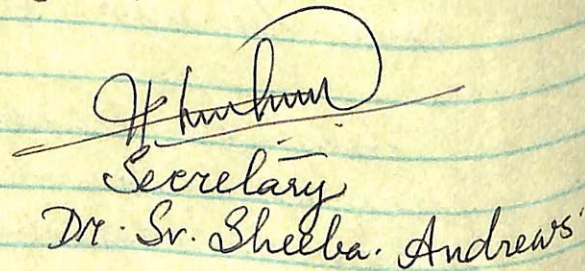 Secretary
Dr. Sr. Sheeba. Andrews